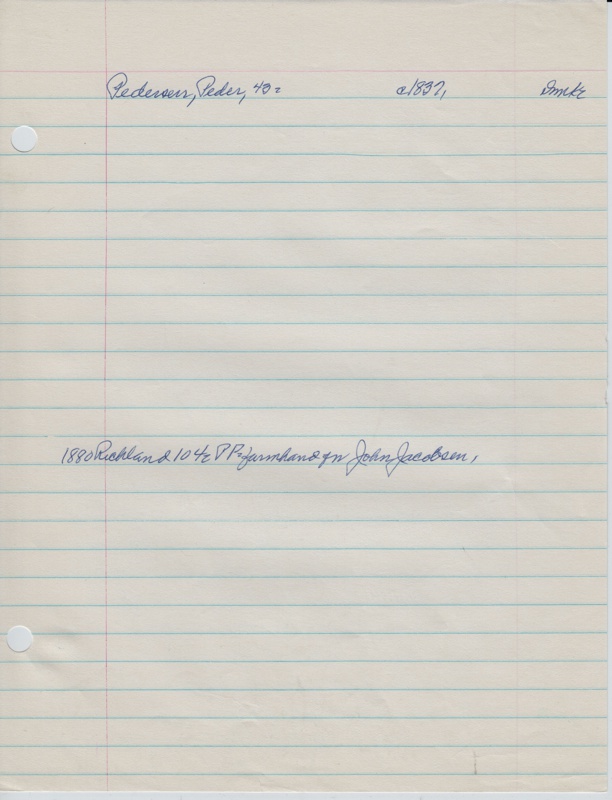 Pedersen, Peder, 43= c1837, Dmk
1880 Richland 10 P P= farmhand John Jacobsen,